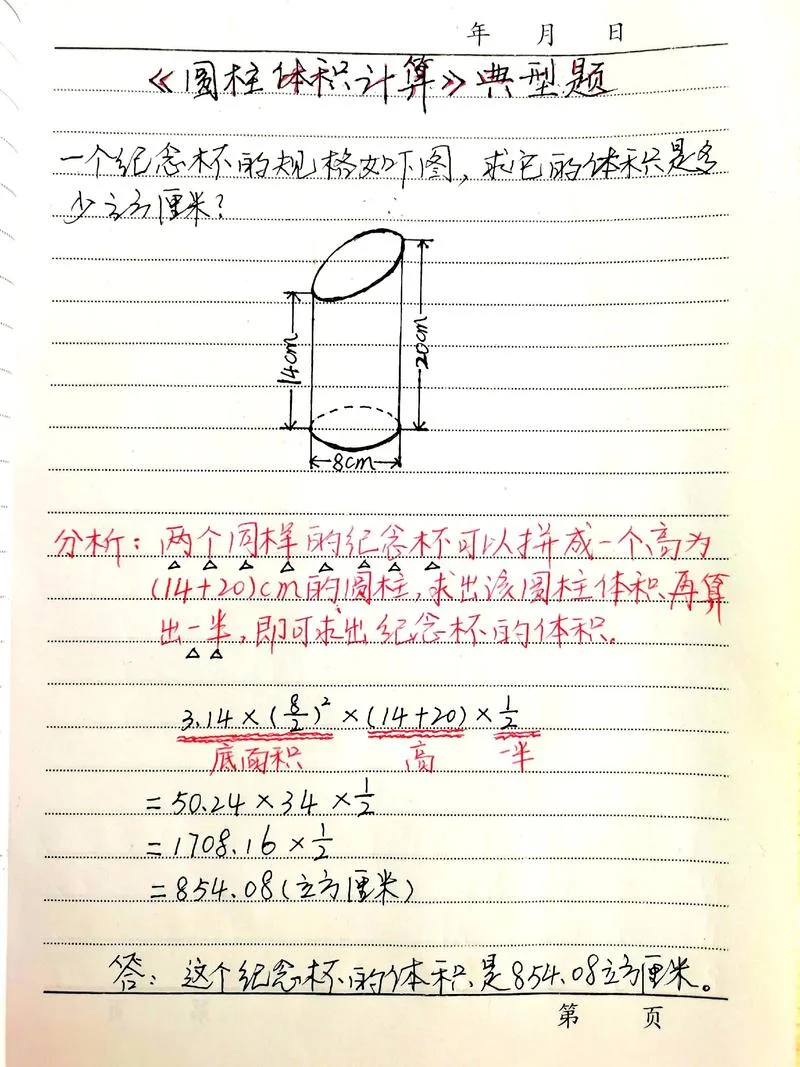 年 月 日
《圆柱体积计算》典型题
一个纪念杯的规格如下图，求它的体积是多
少立方厘米？
14cm
20cm
8cm
分析：两个同样的纪念杯可以拼成一个高为
(14+20)cm的圆柱，求出该圆柱体积再算
出一半，即可求出纪念杯的体积。
3.14×(8/2)²×(14+20)×1/2
底面积 高 一半
=50.24×34×1/2
=1708.16×1/2
=854.08(立方厘米)
答：这个纪念杯的体积是854.08立方厘米。
第 页